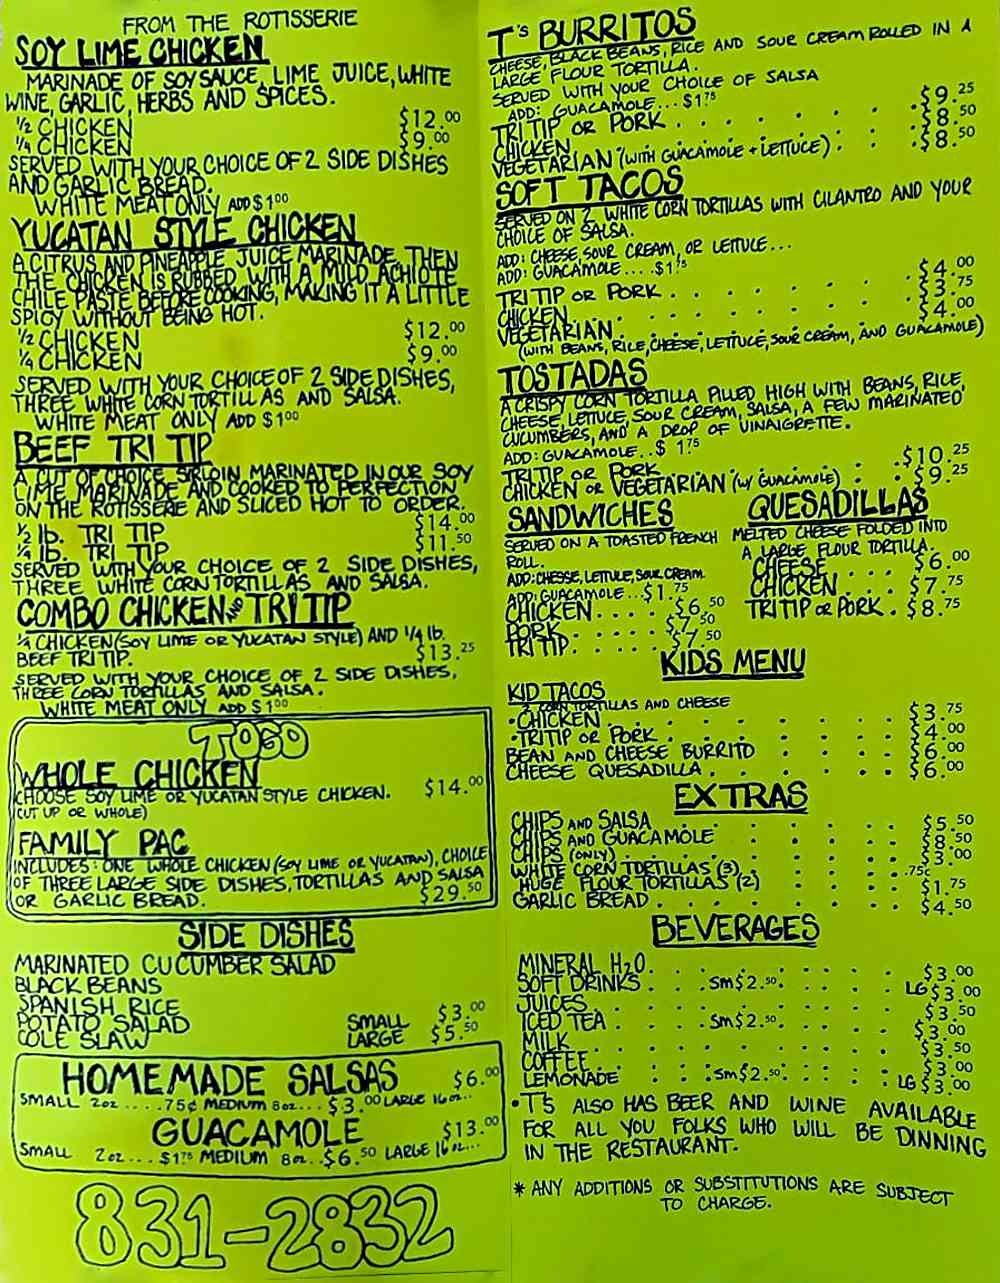 FROM THE ROTISSERIE
SOY LIME CHICKEN
MARINADE OF SOY SAUCE, LIME JUICE, WHITE
WINE, GARLIC, HERBS AND SPICES.
1/2 CHICKEN $12.00
1/4 CHICKEN $9.00
SERVED WITH YOUR CHOICE OF 2 SIDE DISHES
AND GARLIC BREAD.
WHITE MEAT ONLY ADD $1.00
YUCATAN STYLE CHICKEN
A CITRUS AND PINEAPPLE JUICE MARINADE, THEN
THE CHICKEN IS RUBBED WITH A MILD ACHIOTE
CHILE PASTE BEFORE COOKING, MAKING IT A LITTLE
SPICY WITHOUT BEING HOT.
1/2 CHICKEN $12.00
1/4 CHICKEN $9.00
SERVED WITH YOUR CHOICE OF 2 SIDE DISHES,
THREE WHITE CORN TORTILLAS AND SALSA.
WHITE MEAT ONLY ADD $1.00
BEEF TRI TIP
A CUT OF CHOICE SIRLOIN MARINATED IN OUR SOY
LIME MARINADE AND COOKED TO PERFECTION
ON THE ROTISSERIE AND SLICED HOT TO ORDER.
1/2 lb. TRI TIP $14.00
1/4 lb. TRI TIP $11.50
SERVED WITH YOUR CHOICE OF 2 SIDE DISHES,
THREE WHITE CORN TORTILLAS AND SALSA.
COMBO CHICKEN AND TRI TIP
1/4 CHICKEN (SOY LIME OR YUCATAN STYLE) AND 1/4 lb.
BEEF TRI TIP. $13.25
SERVED WITH YOUR CHOICE OF 2 SIDE DISHES,
THREE CORN TORTILLAS AND SALSA.
WHITE MEAT ONLY ADD $1.00
TOGO
WHOLE CHICKEN $14.00
CHOOSE SOY LIME OR YUCATAN STYLE CHICKEN.
(CUT UP OR WHOLE)
FAMILY PAC
INCLUDES: ONE WHOLE CHICKEN (SOY LIME OR YUCATAN), CHOICE
OF THREE LARGE SIDE DISHES, TORTILLAS AND SALSA
OR GARLIC BREAD. $29.50
SIDE DISHES
MARINATED CUCUMBER SALAD
BLACK BEANS
SPANISH RICE
POTATO SALAD SMALL $3.00
COLE SLAW LARGE $5.50
HOMEMADE SALSAS $6.00
SMALL 2oz.....75¢ MEDIUM 8oz... $3.00 LARGE 16oz..
GUACAMOLE $13.00
SMALL 2oz... $1.75 MEDIUM 8oz..$6.50 LARGE 16oz...
831-2832
T's BURRITOS
CHEESE, BLACK BEANS, RICE AND SOUR CREAM ROLLED IN A
LARGE FLOUR TORTILLA.
SERVED WITH YOUR CHOICE OF SALSA
ADD: GUACAMOLE... $1.75
TRI TIP OR PORK . . . . . . $9.25
CHICKEN . . . . . . $8.50
VEGETARIAN (WITH GUACAMOLE + LETTUCE) . . . $8.50
SOFT TACOS
SERVED ON 2 WHITE CORN TORTILLAS WITH CILANTRO AND YOUR
CHOICE OF SALSA.
ADD: CHEESE, SOUR CREAM, OR LETTUCE...
ADD: GUACAMOLE....$1.75
TRI TIP OR PORK . . . . . . $4.00
CHICKEN . . . . . . $3.75
VEGETARIAN . . . . . . $4.00
(WITH BEANS, RICE, CHEESE, LETTUCE, SOUR CREAM, AND GUACAMOLE)
TOSTADAS
A CRISPY CORN TORTILLA PILLED HIGH WITH BEANS, RICE,
CHEESE, LETTUCE, SOUR CREAM, SALSA, A FEW MARINATED
CUCUMBERS, AND A DROP OF VINAIGRETTE.
ADD: GUACAMOLE..$ 1.75
TRI TIP OR PORK . . . . . . $10.25
CHICKEN OR VEGETARIAN (W/ GUACAMOLE) . . $9.25
SANDWICHES
SERVED ON A TOASTED FRENCH
ROLL.
ADD: CHEESE, LETTUCE, SOUR CREAM.
ADD: GUACAMOLE...$1.75
CHICKEN . . . . $6.50
PORK . . . . . $7.50
TRI TIP . . . . $7.50
QUESADILLAS
MELTED CHEESE FOLDED INTO
A LARGE FLOUR TORTILLA.
CHEESE . . . $6.00
CHICKEN . . . $7.75
TRI TIP OR PORK . $8.75
KIDS MENU
KID TACOS
2 CORN TORTILLAS AND CHEESE
•CHICKEN . . . . . . $3.75
•TRI TIP OR PORK . . . . . . $4.00
BEAN AND CHEESE BURRITO . . . . $6.00
CHEESE QUESADILLA . . . . . $6.00
EXTRAS
CHIPS AND SALSA . . . . . $5.50
CHIPS AND GUACAMOLE . . . . . $8.50
CHIPS (ONLY) . . . . . $3.00
WHITE CORN TORTILLAS (3) . . . . .75¢
HUGE FLOUR TORTILLAS (2) . . . . $1.75
GARLIC BREAD . . . . . $4.50
BEVERAGES
MINERAL H2O . . . . . $3.00
SOFT DRINKS . . . SM $2.50 . . . LG $3.00
JUICES . . . . . $3.50
ICED TEA . . . SM $2.50 . . . $3.00
MILK . . . . . $3.50
COFFEE . . . . . $3.00
LEMONADE . . . SM $2.50 . . . LG $3.00
•T'S ALSO HAS BEER AND WINE AVAILABLE
FOR ALL YOU FOLKS WHO WILL BE DINNING
IN THE RESTAURANT.
* ANY ADDITIONS OR SUBSTITUTIONS ARE SUBJECT
TO CHARGE.